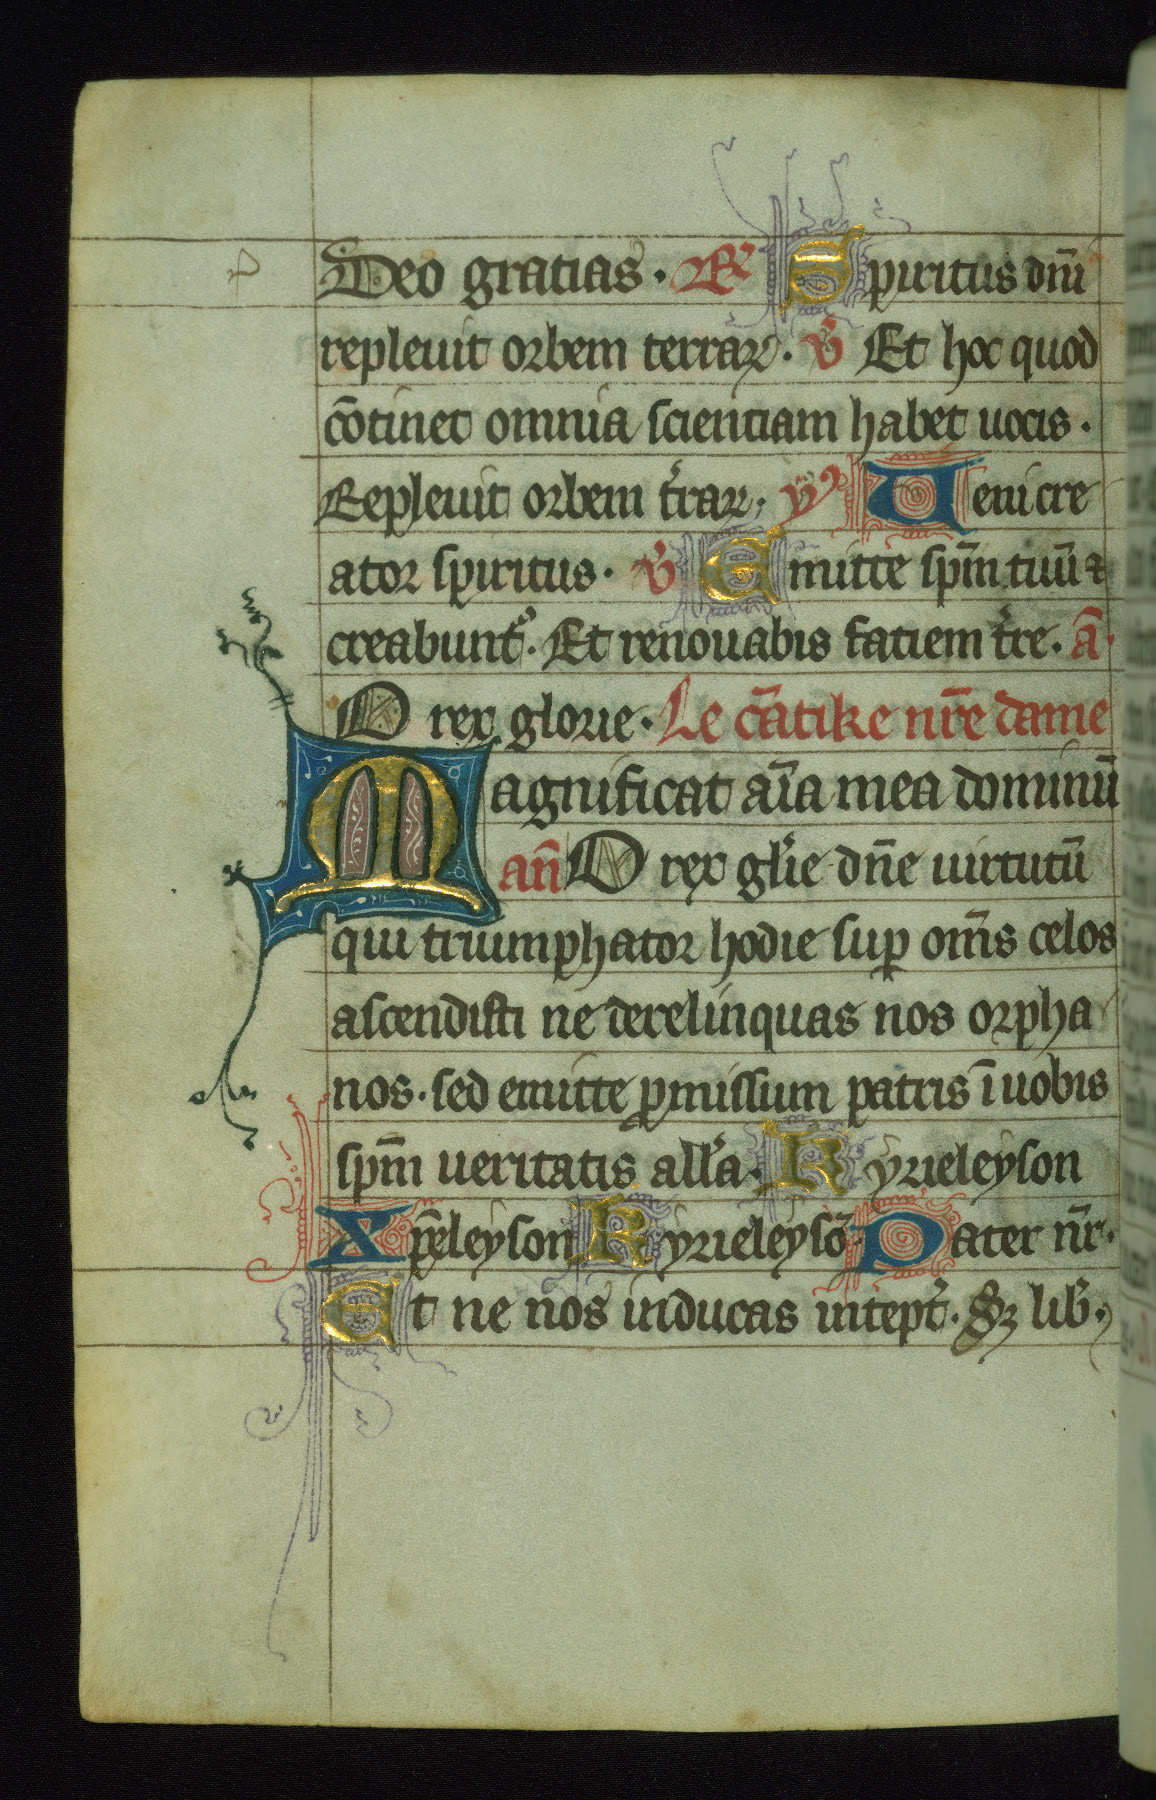 Deo gratias. R̃ Spiritus dn̄i
repleuit orbem terrarꝝ. v̓ Et hoc quod
cōtinet omnia scientiam habet uocis.
Repleuit orbem t̓rarꝝ. ỹ Ueni cre
ator spiritus. v̓ Emitte sp̄m tuū ⁊
creabunt᷑. Et renouabis faciem t̓re. ā.
O rex glorie. Le cātike nr̄e dame
Magnificat aīa mea dominū
an̄ O rex gl̓ie dn̄e uirtutū
qui triumphator hodie sup̲ om̄s celos
ascendisti ne derelinquas nos orpha
nos. sed emitte ꝓmissum patris ī uobis
sp̄m ueritatis all̓a. Kyrieleyson
Xp̄eleyson Kyrieleysō Pater nr̄.
Et ne nos inducas in tept̓. Sꝫ lib̓.